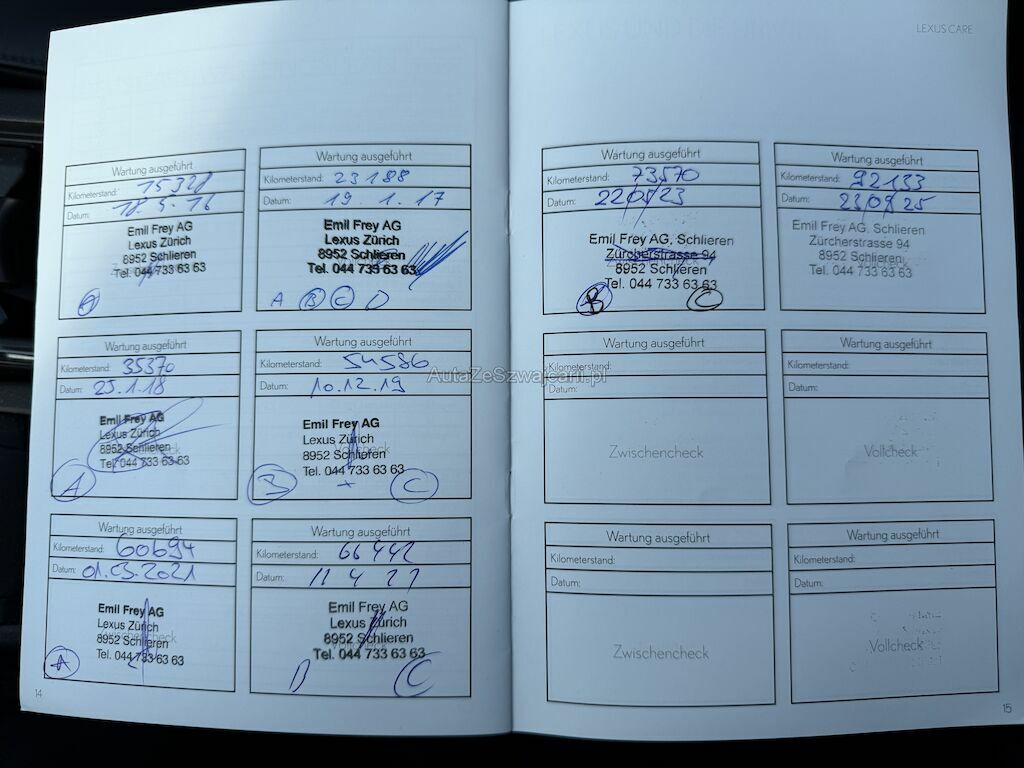 LEXUS CARE
Wartung ausgeführt
Kilometerstand: 15328
Datum: 18.5.16
Emil Frey AG
Lexus Zürich
8952 Schlieren
Tel. 044 733 63 63
A
Wartung ausgeführt
Kilometerstand: 23188
Datum: 19.1.17
Emil Frey AG
Lexus Zürich
8952 Schlieren
Tel. 044 733 63 63
A B C D
Wartung ausgeführt
Kilometerstand: 35370
Datum: 25.1.18
Emil Frey AG
Lexus Zürich
8952 Schlieren
Tel. 044 733 63 63
A
Wartung ausgeführt
Kilometerstand: 54586
Datum: 10.12.19
Emil Frey AG
Lexus Zürich
8952 Schlieren
Tel. 044 733 63 63
B C
Wartung ausgeführt
Kilometerstand: 60694
Datum: 01.03.2021
Emil Frey AG
Lexus Zürich
8952 Schlieren
Tel. 044 733 63 63
A
Wartung ausgeführt
Kilometerstand: 66442
Datum:
Emil Frey AG
Lexus Zürich
8952 Schlieren
Tel. 044 733 63 63
B C
14
Wartung ausgeführt
Kilometerstand: 73570
Datum: 22/05/23
Emil Frey AG, Schlieren
Zürcherstrasse 94
8952 Schlieren
Tel. 044 733 63 63
B C
Wartung ausgeführt
Kilometerstand: 92133
Datum: 23/09/25
Emil Frey AG, Schlieren
Zürcherstrasse 94
8952 Schlieren
Tel. 044 733 63 63
Wartung ausgeführt
Kilometerstand:
Datum:
Zwischencheck
Wartung ausgeführt
Kilometerstand:
Datum:
Vollcheck
Wartung ausgeführt
Kilometerstand:
Datum:
Zwischencheck
Wartung ausgeführt
Kilometerstand:
Datum:
Vollcheck
15
AutaZeSzwajcarii.pl